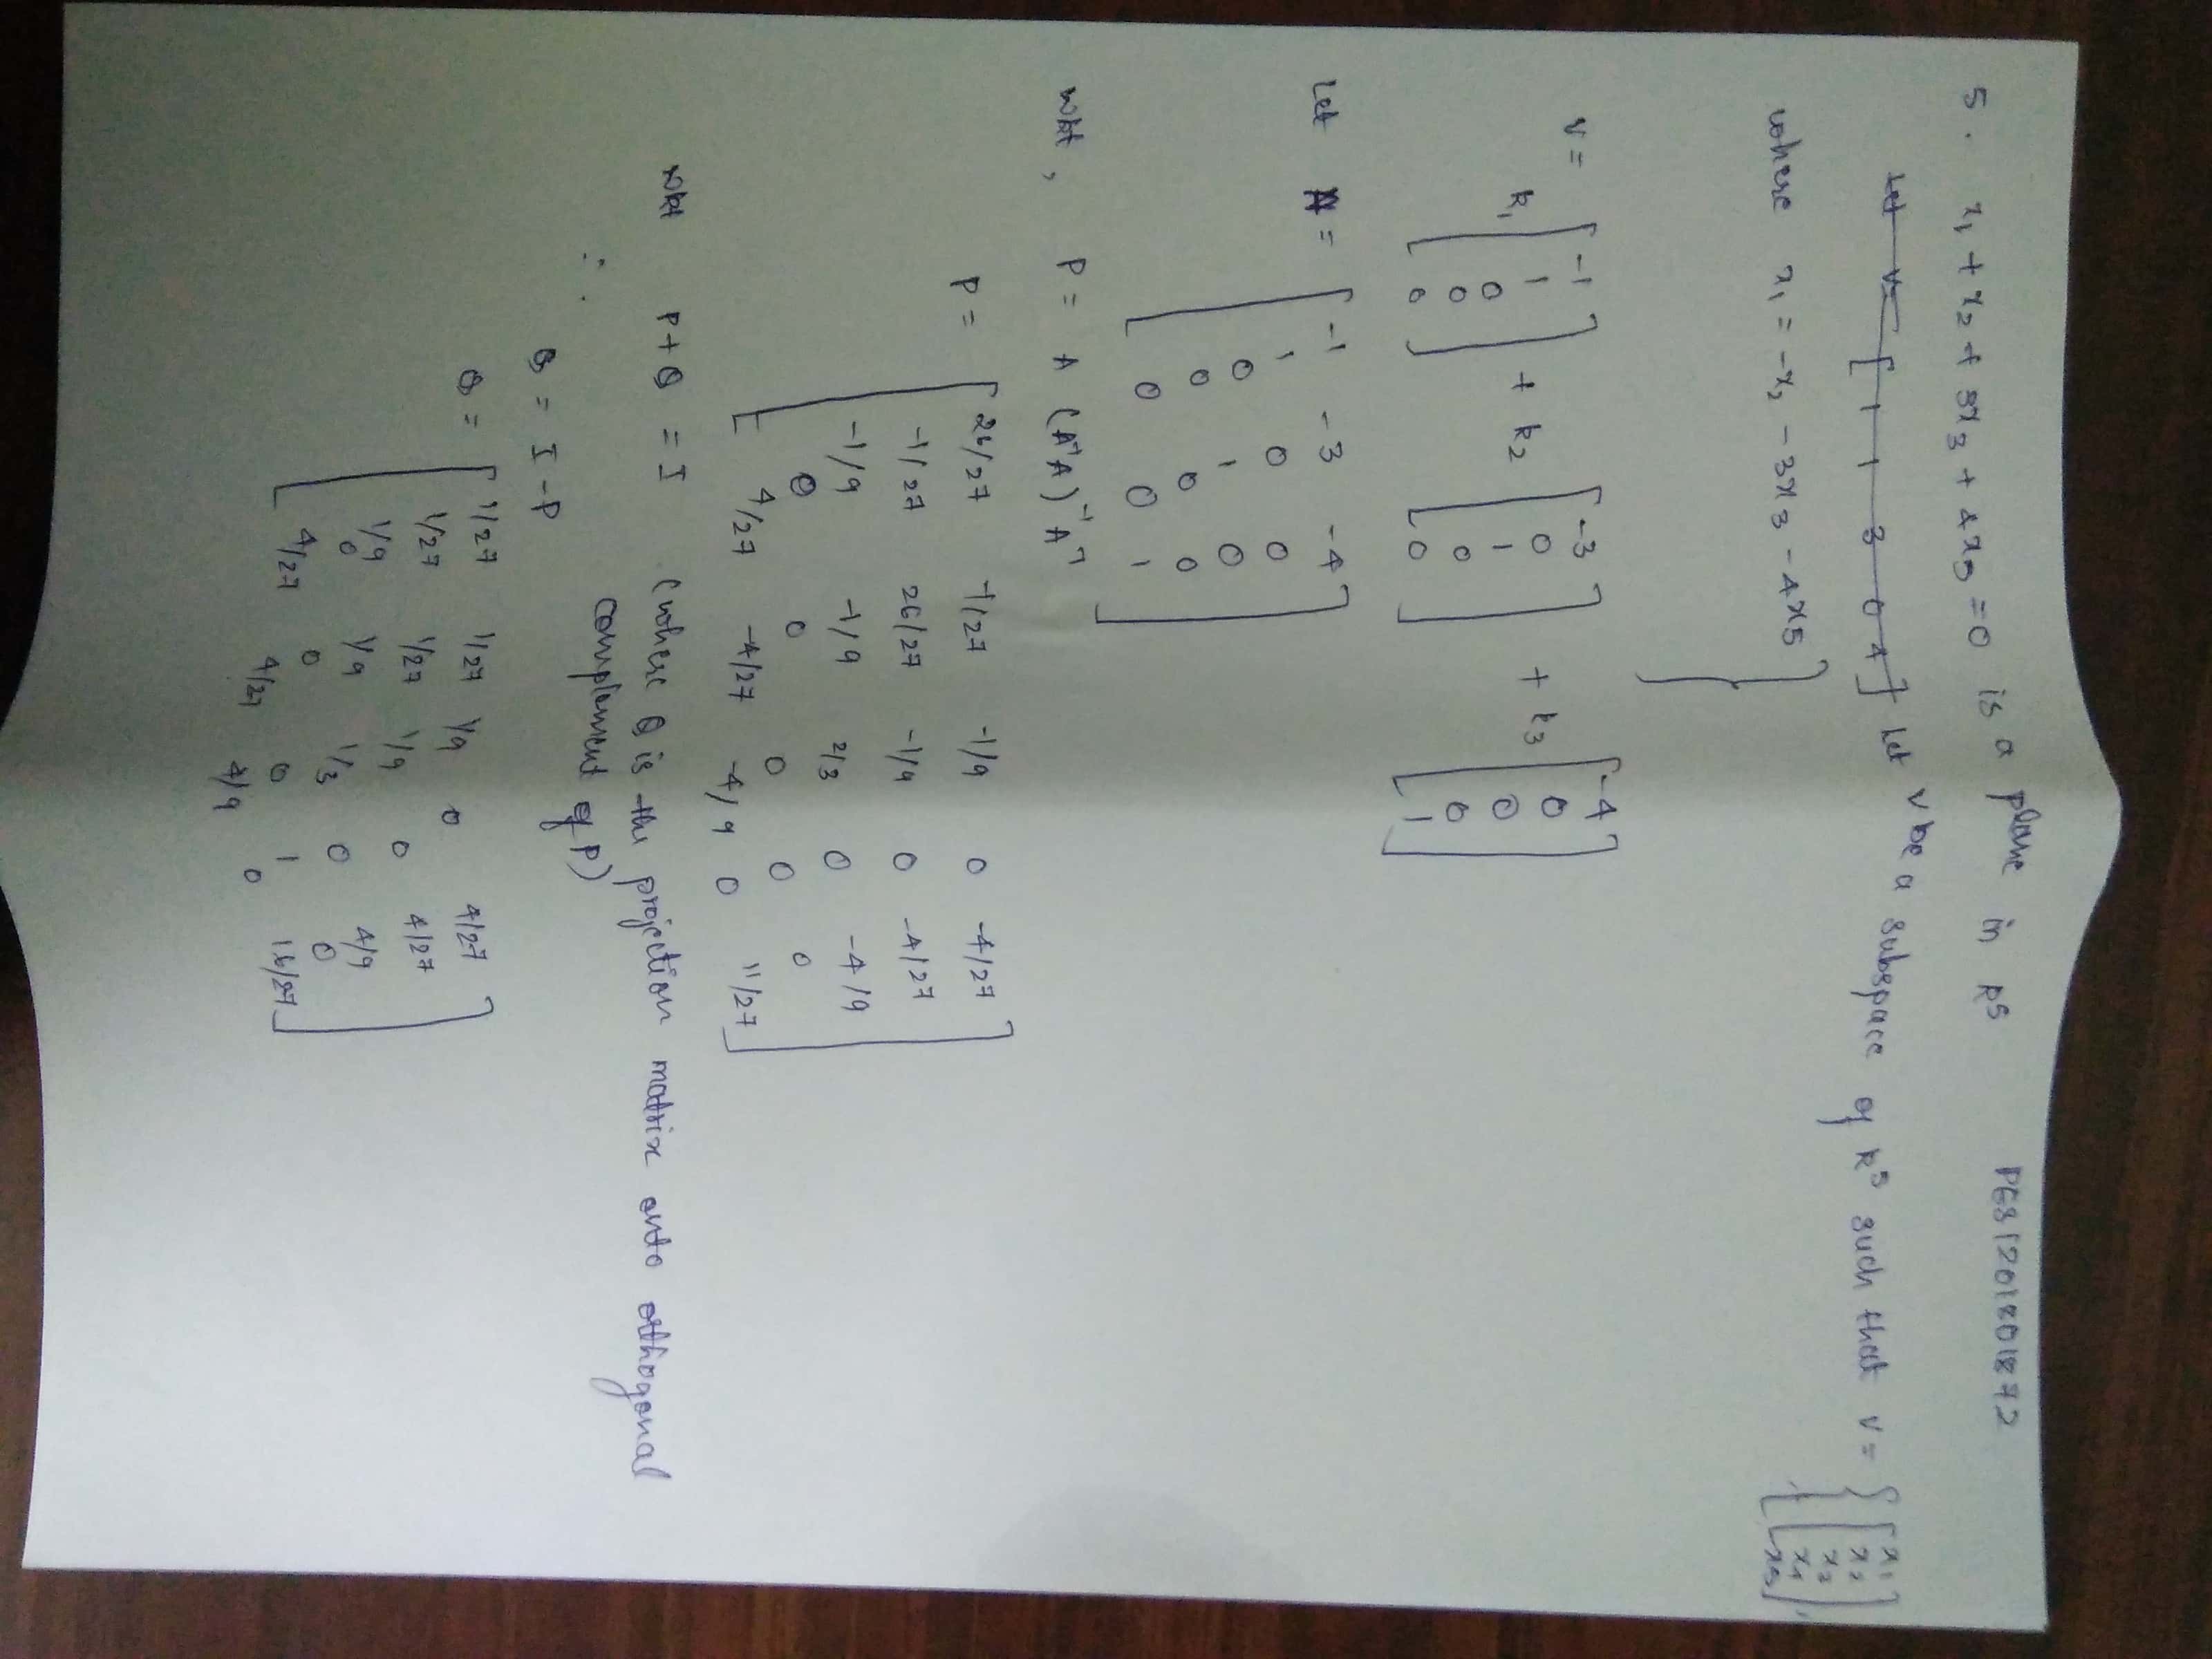 PES1201801872
5. x₁ + x₂ + 3x₃ + 4x₅ = 0 is a plane in R⁵
Let V = [ 1 1 3 0 4 ] Let V be a subspace of R⁵ such that V = { [ x₁ x₂ x₃ x₄ x₅ ],
where x₁ = -x₂ - 3x₃ - 4x₅ }
V = k₁ [ -1 1 0 0 0 ] + k₂ [ -3 0 1 0 0 ] + k₃ [ -4 0 0 0 1 ]
Let A = [ -1 -3 -4
1 0 0
0 1 0
0 0 0
0 0 1 ]
WKT, P = A (AᵀA)⁻¹Aᵀ
P = [ 26/27 -1/27 -1/9 0 -4/27
-1/27 26/27 -1/9 0 -4/27
-1/9 -1/9 2/3 0 -4/9
0 0 0 0 0
4/27 -4/27 -4/9 0 11/27 ]
WKT P + Q = I (where Q is the projection matrix onto orthogonal
complement of P)
∴
Q = I - P
Q = [ 1/27 1/27 1/9 0 4/27
1/27 1/27 1/9 0 4/27
1/9 1/9 1/3 0 4/9
0 0 0 1 0
4/27 4/27 4/9 0 16/27 ]